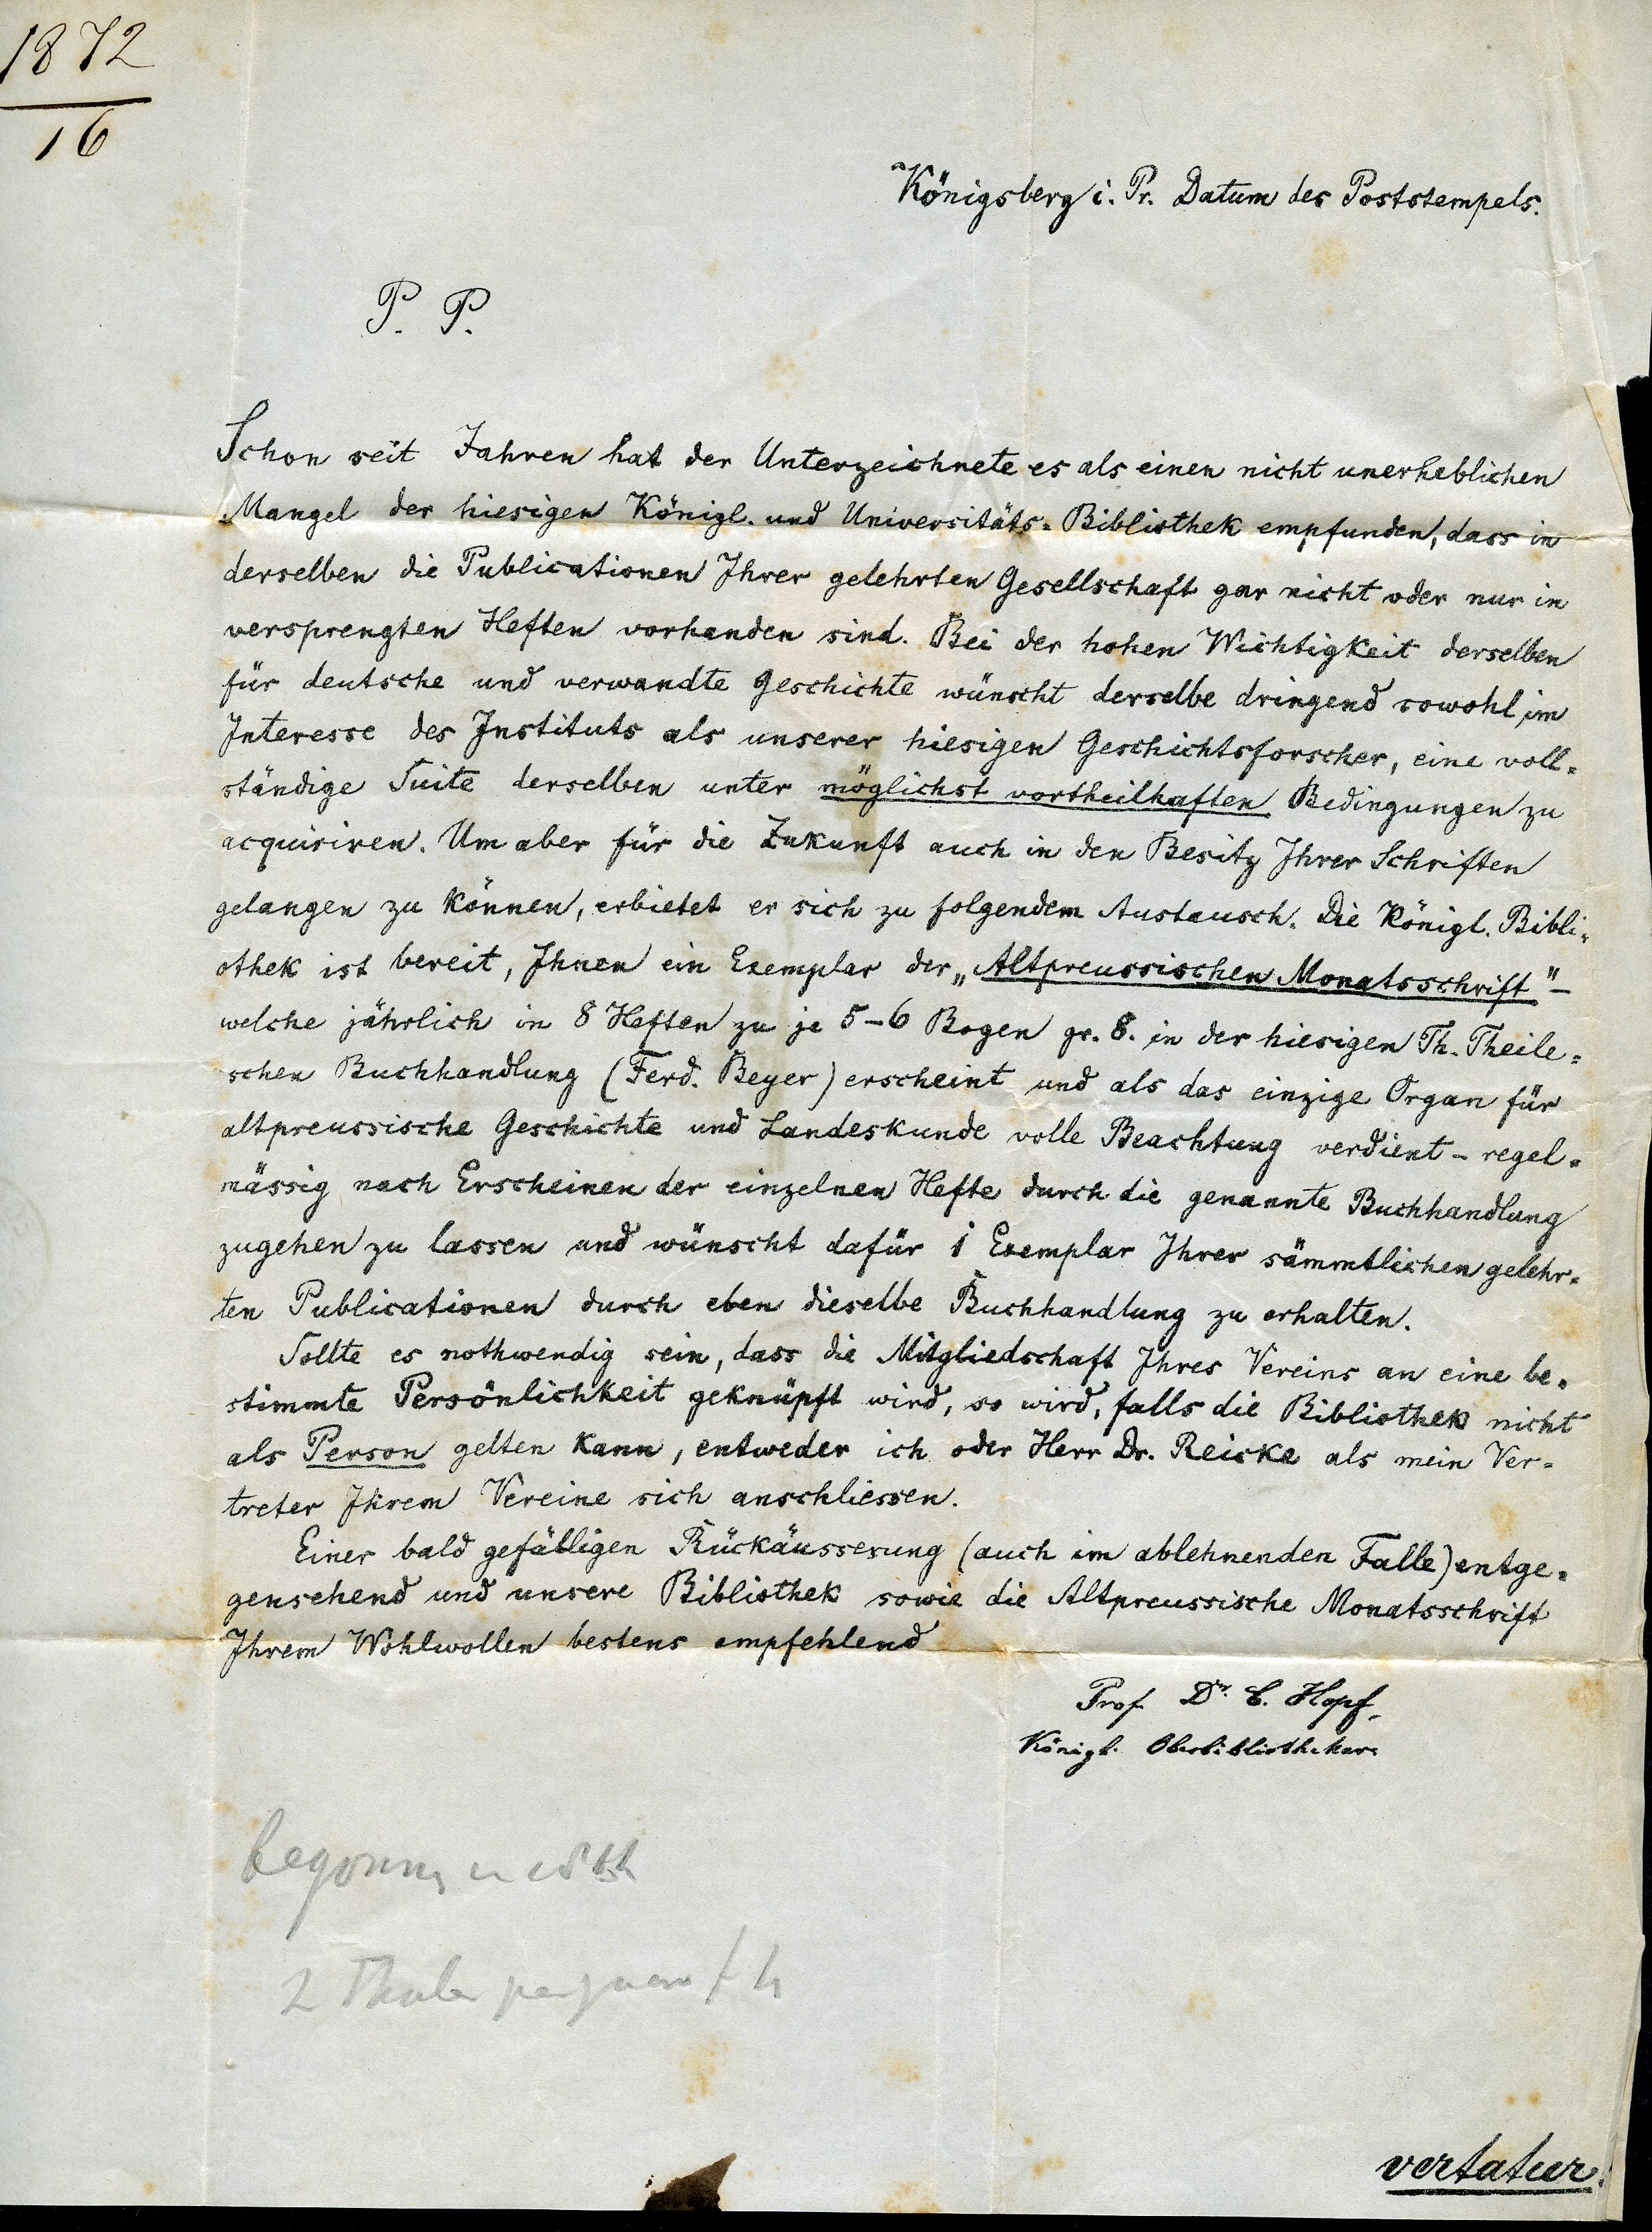 1872
16
Königsberg i. Pr. Datum des Poststempels.
P. P.
Schon seit Jahren hat der Unterzeichnete es als einen nicht unerheblichen
Mangel der hiesigen Königl. und Universitäts-Bibliothek empfunden, dass in
derselben die Publicationen Ihrer gelehrten Gesellschaft gar nicht oder nur in
versprengten Heften vorhanden sind. Bei der hohen Wichtigkeit derselben
für deutsche und verwandte Geschichte wünscht derselbe dringend sowohl im
Interesse des Instituts als unserer hiesigen Geschichtsforscher, eine voll-
ständige Suite derselben unter möglichst vortheilhaften Bedingungen zu
acquiriren. Um aber für die Zukunft auch in den Besitz Ihrer Schriften
gelangen zu können, erbietet er sich zu folgendem Austausch. Die Königl. Bibli-
othek ist bereit, Ihnen ein Exemplar der „Altpreussischen Monatsschrift" –
welche jährlich in 8 Heften zu je 5–6 Bogen gr. 8. in der hiesigen Th. Theile-
schen Buchhandlung (Ferd. Beyer) erscheint und als das einzige Organ für
altpreussische Geschichte und Landeskunde volle Beachtung verdient – regel-
mässig nach Erscheinen der einzelnen Hefte durch die genannte Buchhandlung
zugehen zu lassen und wünscht dafür 1 Exemplar Ihrer sämmtlichen gelehr-
ten Publicationen durch eben dieselbe Buchhandlung zu erhalten.
Sollte es nothwendig sein, dass die Mitgliedschaft Ihres Vereins an eine be-
stimmte Persönlichkeit geknüpft wird, so wird, falls die Bibliothek nicht
als Person gelten kann, entweder ich oder Herr Dr. Reicke als mein Ver-
treter Ihrem Vereine sich anschliessen.
Einer bald gefälligen Rückäusserung (auch im ablehnenden Falle) entge-
gensehend und unsere Bibliothek sowie die Altpreussische Monatsschrift
Ihrem Wohlwollen bestens empfehlend
Prof. Dr. C. Hopf,
Königl. Oberbibliothekar.
2 Thaler
vertatur.